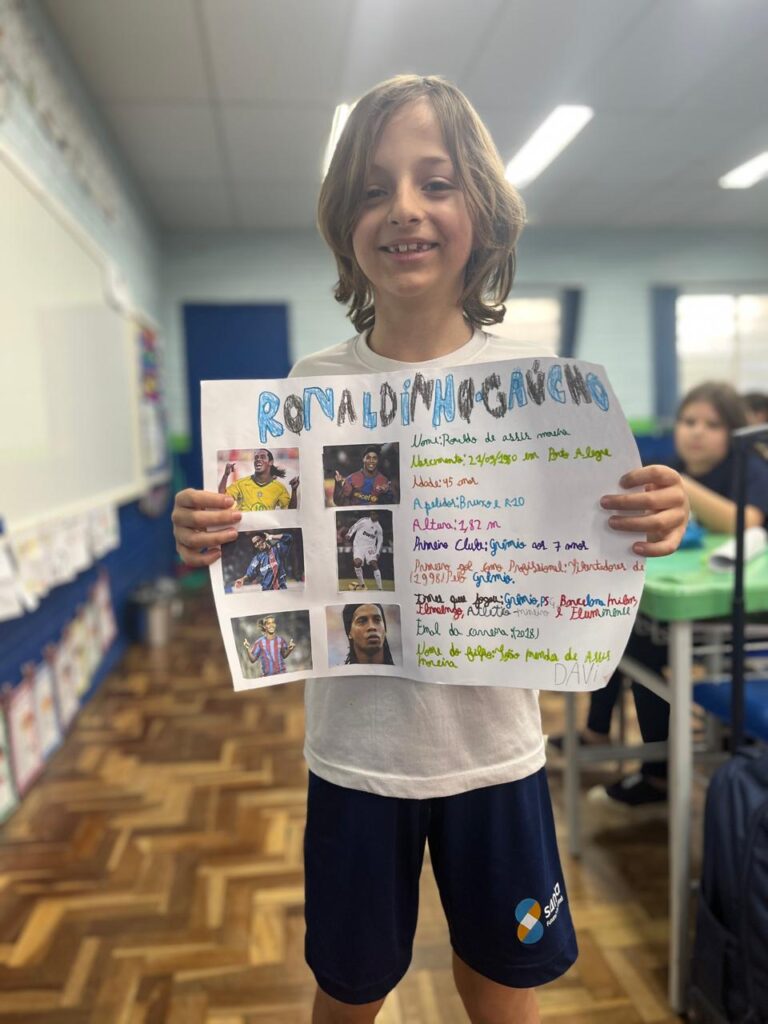 RONALDINHO-GAÚCHO
Nome: Ronaldo de assis moreira
Nascimento: 21/03/1980 em Porto Alegre
Idade: 45 anos
Apelidos: Bruxo e R10
Altura: 1,82 m
Primeiro Club: Grêmio aos 7 anos
Primeiro gol como Profissional: Libertadores de
(1998) Pelo Grêmio.
que jogou: Grêmio, PSG, Barcelona, milan,
Flamengo, Atletico-mineiro e Fluminense
Final da carreira: (2018)
Nome do filho: João mendes de Assis
moreira
DAVi
unicef